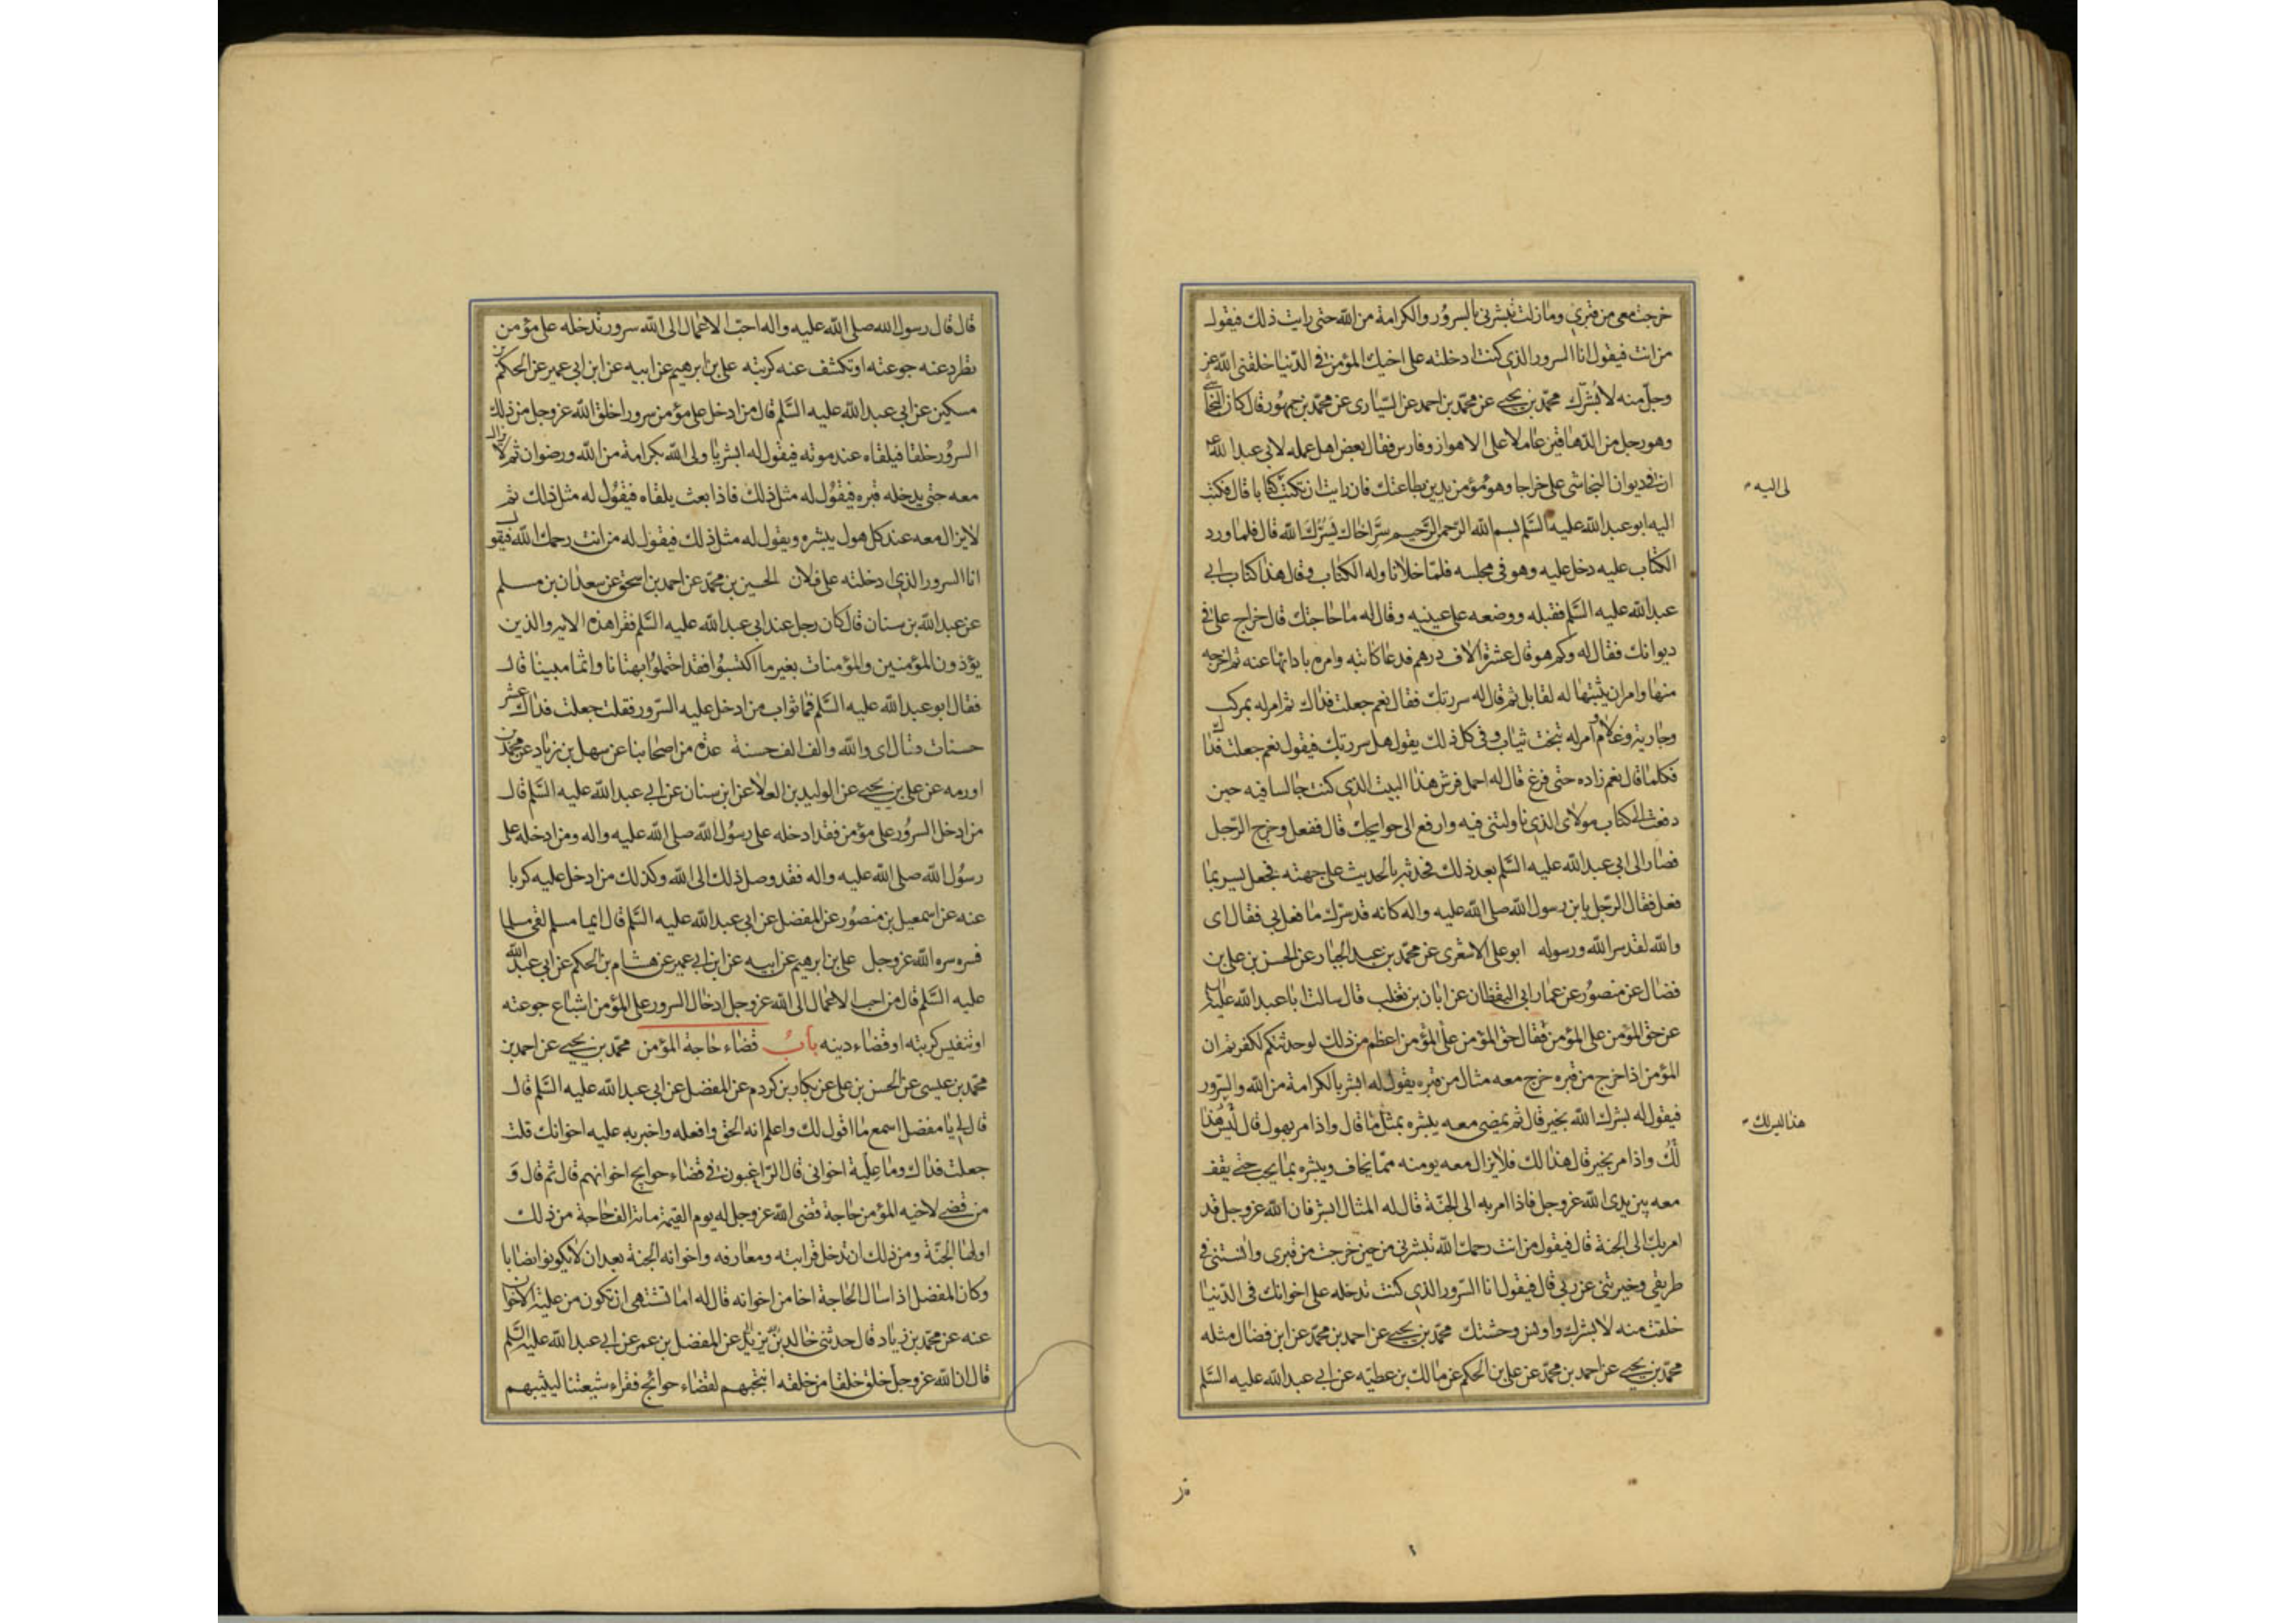 خرجت معى من قبري وما زلت تبشرنى بالسرور والكرامة من الله حتى رايت ذلك فيقول
من انت فيقول انا السرور الذي كنت ادخلته على اخيك المؤمن فى الدنيا خلقنى الله عز
وجل منه لابشرك محمد بن يحيى عن محمد بن احمد عن السيارى عن محمد بن جمهور قال كان النجاشى
وهو رجل من الدهاقين عاملا على الاهواز وفارس فقال بعض اهل عمله لابى عبد الله ع
ان فى ديوان النجاشى على خراجا وهو مؤمن يدين بطاعتك فان رايت ان تكتب كتابا قال فكتب
لى اليه
اليه ابو عبد الله عليه السلم بسم الله الرحمن الرحيم سر اخاك يسرك الله قال فلما ورد
الكتاب عليه دخل عليه وهو فى مجلسه فلما خلا ناوله الكتاب وقال هذا كتاب ابى
عبد الله عليه السلم فقبله ووضعه على عينيه وقال له ما حاجتك قال خراج على فى
ديوانك فقال له وكم هو قال عشرة الاف درهم فدعا كاتبه وامره بادائها عنه ثم اخرجه
منها وامر ان يثبتها له لقابل ثم قال له سررتك فقال نعم جعلت فداك ثم امر له بمركب
وجارية وغلام وامر له بتخت ثياب وفى كل ذلك يقول هل سررتك فيقول نعم جعلت فداك
فكلما قال نعم زاده حتى فرغ قال له احمل فرش هذا البيت الذي كنت جالسا فيه حين
دفعت الى كتاب مولاى الذي ناولتنى فيه وارفع الى حوايجك قال ففعل وخرج الرجل
فصار الى ابى عبد الله عليه السلم بعد ذلك فحدثه بالحديث على جهته فجعل يسر بما
فعل فقال الرجل يا بن رسول الله صلى الله عليه واله كانه قد سرك ما فعل بى فقال اى
والله لقد سر الله ورسوله ابو على الاشعرى عن محمد بن عبد الجبار عن الحسن بن على بن
فضال عن منصور عن عمار ابى اليقظان عن ابان بن تغلب قال سالت ابا عبد الله عليه السلم
عن حق المؤمن على المؤمن فقال حق المؤمن على المؤمن اعظم من ذلك لو حدثتكم لكفرتم ان
المؤمن اذا خرج من قبره خرج معه مثال من قبره يقول له ابشر بالكرامة من الله والسرور
فيقول له بشرك الله بخير قال ثم يمضى معه يبشره بمثل ما قال واذا مر بهول قال ليس هذا
هذا ليس لك
لك واذا مر بخير قال هذا لك فلا يزال معه يومنه مما يخاف ويبشره بما يحب حتى يقف
معه بين يدى الله عز وجل فاذا امر به الى الجنة قال له المثال ابشر فان الله عز وجل قد
امر بك الى الجنة قال فيقول من انت رحمك الله تبشرنى من حين خرجت من قبرى وانستنى فى
طريقى وخبرتنى عن ربى قال فيقول انا السرور الذي كنت تدخله على اخوانك فى الدنيا
خلقت منه لابشرك واونس وحشتك محمد بن يحيى عن احمد بن محمد عن ابن فضال مثله
محمد بن يحيى عن احمد بن محمد عن على بن الحكم عن مالك بن عطية عن ابى عبد الله عليه السلم
قال قال رسول الله صلى الله عليه واله احب الاعمال الى الله سرور تدخله على مؤمن
تطرد عنه جوعته او تكشف عنه كربته على بن ابرهيم عن ابيه عن ابن ابى عمير عن الحكم بن
مسكين عن ابى عبد الله عليه السلم قال من ادخل على مؤمن سرورا خلق الله عز وجل من ذلك
السرور خلقا فيلقاه عند موته فيقول له ابشر يا ولى الله بكرامة من الله ورضوان ثم لا يزال
معه حتى يدخله قبره فيقول له مثل ذلك فاذا بعث يلقاه فيقول له مثل ذلك ثم
لا يزال معه عند كل هول يبشره ويقول له مثل ذلك فيقول له من انت رحمك الله فيقول
انا السرور الذي ادخلته على فلان الحسين بن محمد عن احمد بن اسحق عن سعدان بن مسلم
عن عبد الله بن سنان قال كان رجل عند ابى عبد الله عليه السلم فقرا هذه الاية والذين
يؤذون المؤمنين والمؤمنات بغير ما اكتسبوا فقد احتملوا بهتانا واثما مبينا قال
فقال ابو عبد الله عليه السلم فما ثواب من ادخل عليه السرور فقلت جعلت فداك عشر
حسنات فقال اى والله والف الف حسنة عدة من اصحابنا عن سهل بن زياد عن محمد بن
اورمه عن على بن يحيى عن الوليد بن العلا عن ابن سنان عن ابى عبد الله عليه السلم قال
من ادخل السرور على مؤمن فقد ادخله على رسول الله صلى الله عليه واله ومن ادخله على
رسول الله صلى الله عليه واله فقد وصل ذلك الى الله وكذلك من ادخل عليه كربا
عنه عن اسمعيل بن منصور عن المفضل عن ابى عبد الله عليه السلم قال ايما مسلم لقى مسلما
فسره سره الله عز وجل على بن ابرهيم عن ابيه عن ابن ابى عمير عن هشام بن الحكم عن ابى عبد الله
عليه السلم قال من احب الاعمال الى الله عز وجل ادخال السرور على المؤمن اشباع جوعته
او تنفيس كربته او قضاء دينه باب قضاء حاجة المؤمن محمد بن يحيى عن احمد بن
محمد بن عيسى عن الحسن بن على عن بكار بن كردم عن المفضل عن ابى عبد الله عليه السلم قال
قال لى يا مفضل اسمع ما اقول لك واعلم انه الحق وافعله واخبر به عليه اخوانك قلت
جعلت فداك وما علية اخوانى قال الراغبون فى قضاء حوايج اخوانهم قال ثم قال و
من قضى لاخيه المؤمن حاجة قضى الله عز وجل له يوم القيمة ماىة الف حاجة من ذلك
اولها الجنة ومن ذلك ان تدخل قرابته ومعارفه واخوانه الجنة بعد ان لا يكونوا نصابا
وكان المفضل اذا سال الحاجة اخا من اخوانه قال له اما تشتهى ان تكون من علية الاخوان
عنه عن محمد بن زياد قال حدثنى خالد بن يزيد عن المفضل بن عمر عن ابى عبد الله عليه السلم
قال ان الله عز وجل خلق خلقا من خلقه انتجبهم لقضاء حوائج فقراء شيعتنا ليثيبهم